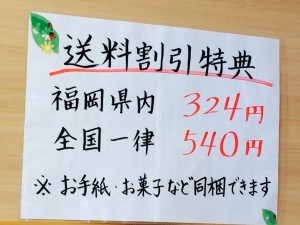 送料割引特典
福岡県内 324円
全国一律 540円
※ お手紙・お菓子など同梱できます